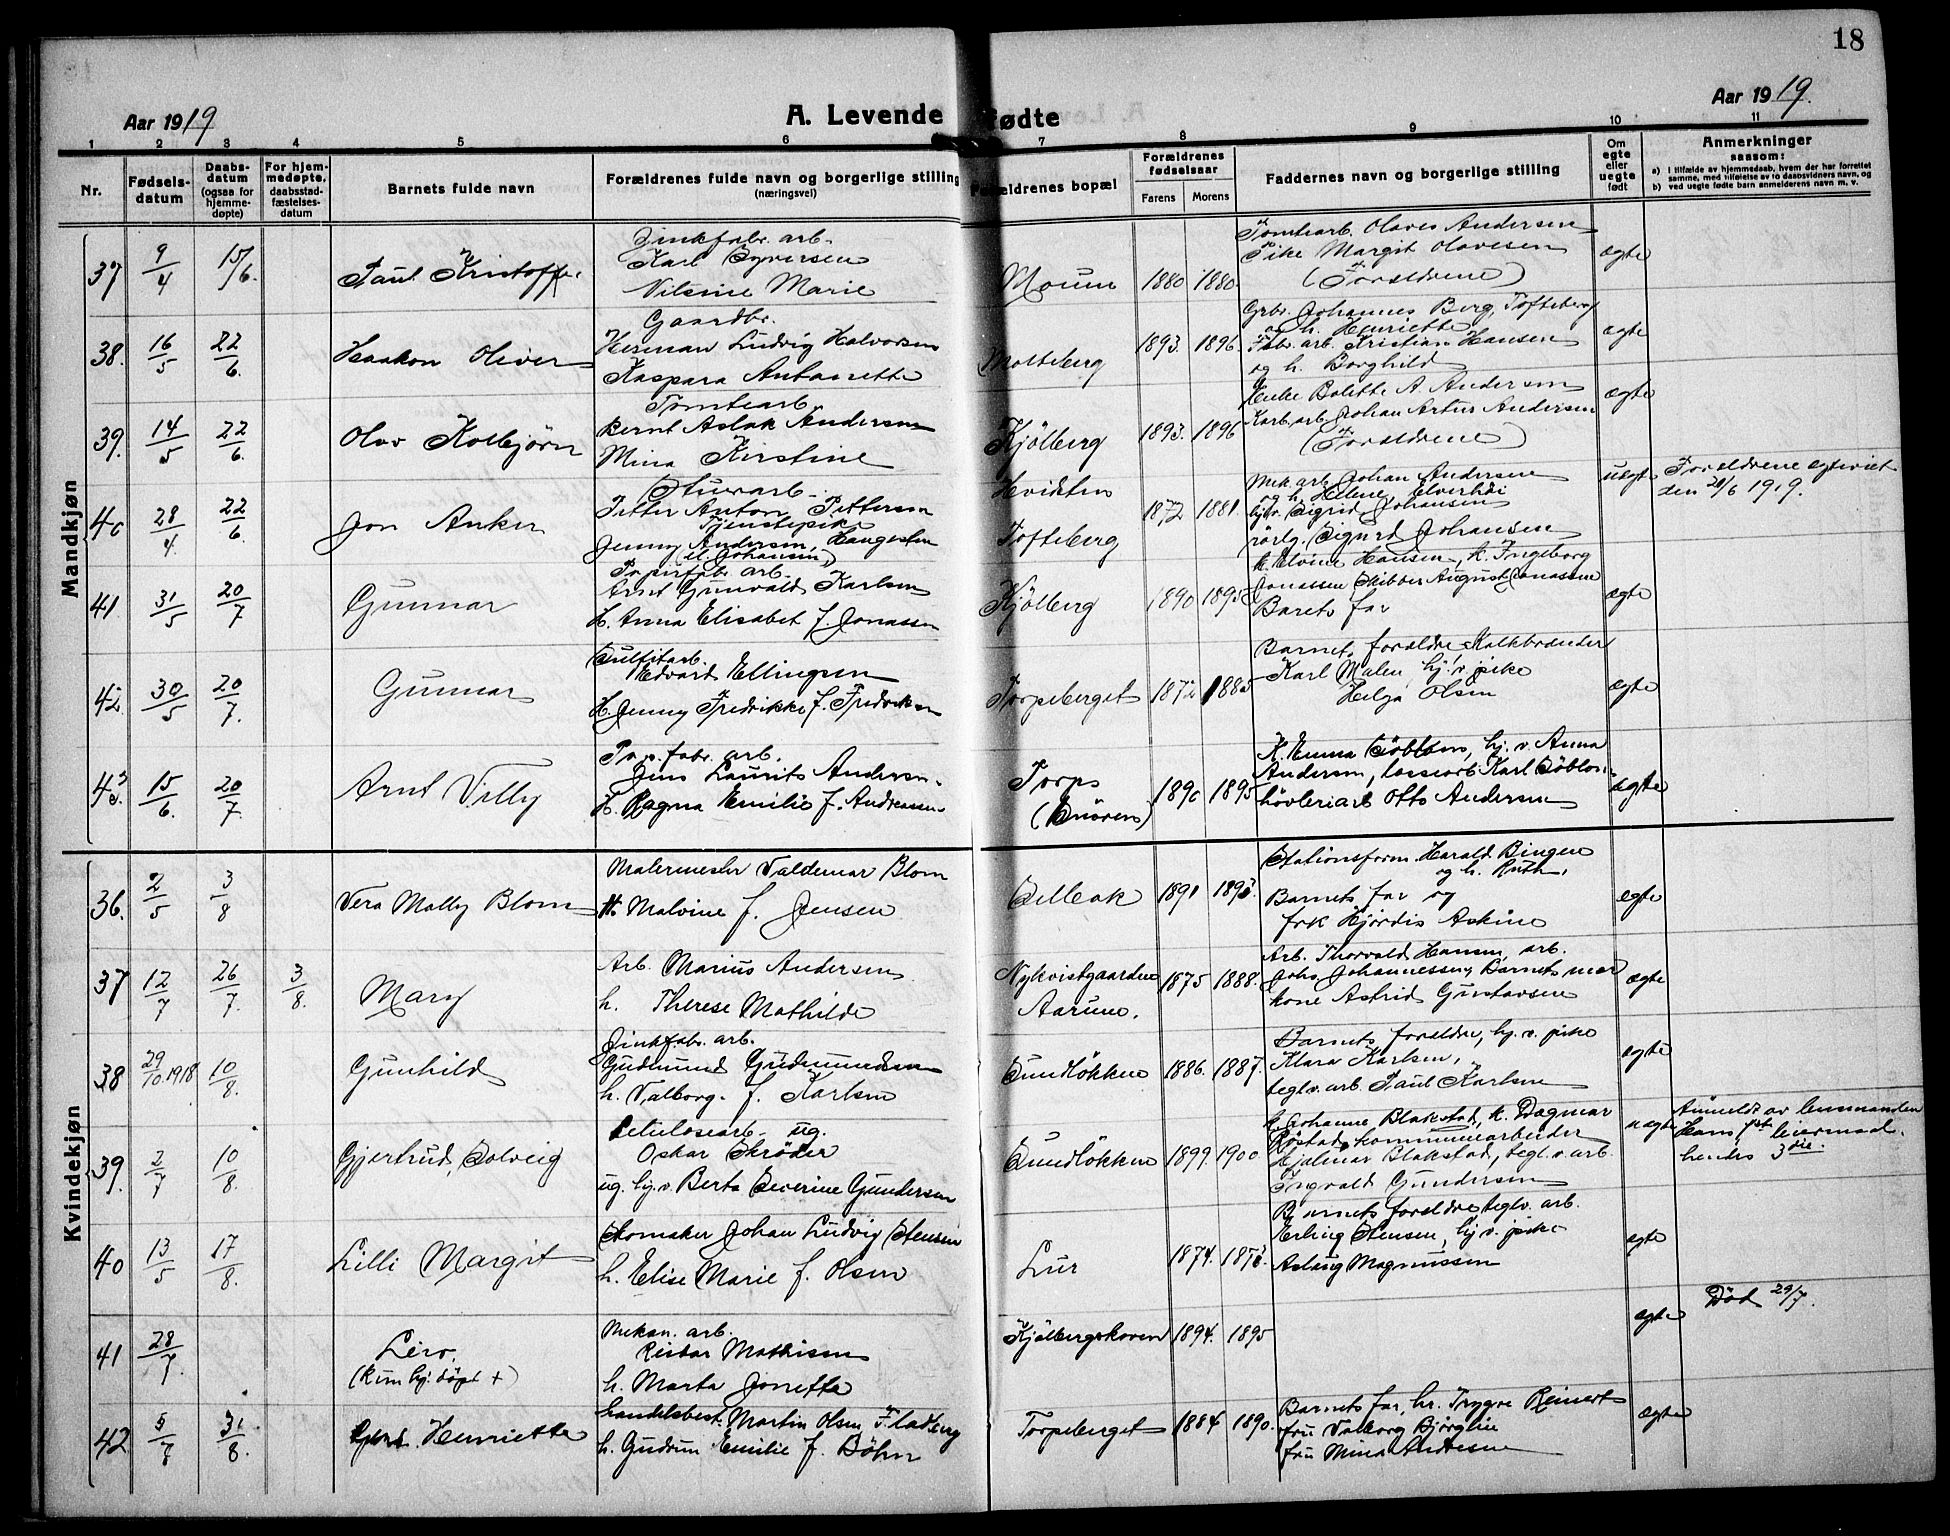 18
Aar 1919
A. Levende fødte
Aar 1919.
1 2 3 4 5 6 7 8 9 10 11
Nr.
Fødsels-
datum
Daabs-
datum
(ogsaa for
hjemme-
døpte)
For hjem-
medøpte,
daabsstad-
fæstelses-
datum
Barnets fulde navn
Forældrenes fulde navn og borgerlige stilling
(næringsvei)
Forældrenes bopæl
Forældrenes
fødselsaar
Farens Morens
Faddernes navn og borgerlige stilling
Om
egte
eller
uegte
født
Anmerkninger
saasom:
a) i tilfælde av hjemmedaab, hvem der har forrettet
samme, med tilføielse av to daabsvidners navn, og
b) ved uegte fødte barn anmelderens navn m. v.
Mandkjøn
37 9/4 15/6. Paul Kristoffer
Zinkfabr. arb.
Karl Syversen
Nilsine Marie
Moum 1880 1880.
Tomtearb. Olaves Andersen
Pike Margit Olavesen
(Forældrene)
egte
38. 16/5 22/6 Haakon Oliver
Gaardbr.
Herman Ludvig Halvorsen
Kaspara Antonette
Molteberg 1893. 1896.
Grbr. Johannes Borg, Tofteberg
og h. Henriette
Fabr. arb. Kristian Hansen
og h. Borghild
egte
39. 14/5 22/6. Olav Kolbjørn
Tomtearb.
Bernt Aslak Andersen
Mina Kirstine
Kjölberg 1893. 1896
Andersen
arb. Johan Artur Andersen
(Forældrene)
egte
40 28/4. 22/6. Jon Anker
Petter Anton Pettersen
Tjenstepike
Jenny Andersen,
el. Johansen)
Hvidsten
Tofteberg
1872 1881.
Mek. arb. Johan Andersen
og h. Helene,
Sigrid Johansen
rörlg. Sigurd Johansen
uegte
Forældrene egteviet
den 28/6 1919.
41. 31/5 20/7 Gunnar
Papirfabr. arb.
Arnt Gunvald Karlsen
H. Anna Elisabet f. Jonassen
Kjölberg 1890 1895
K. Elvine Hansen, k. Ingeborg
Jonassen Skibber August Jonassen
Barets far
egte
42. 30/5 20/7. Gunnar
Sulfitarb.
Edvart Ellingsen
H. Jenny Fredrikke f. Fredriksen
Torpeberget 1872 1885
Barnets forældre Kalkbrænder
Karl Malen hj. v. pike
Helga Olsen
egte
43. 15/6. 20/7. Arnt Villy
Pap. fabr. arb.
Jens Laurits Andersen.
H. Ragna Emilie f. Andreassen
Torps
1890 1895
K. Emma Söblom, hj. v. Anna
Andersen, lossearb Karl Söblom
hövleriarb Otto Andersen
egte
Kvindekjøn
36. 2/5 3/8 Vera Molly Blom
Malermester Valdemar Blom
H. Malvine f. Jensen
Selleak 1891 1893.
Stationsform. Harald Bingen
og h. Ruth,
Barnets far og
frk Hjördis Askim
egte
37 12/7 26/7. 3/8. Mary
Arb. Marius Andersen
h. Therese Mathilde
Nykvistgaarden
Aarum.
1875 1888.
Arb. Thorvald Hansen, arb.
Johs. Johannessen, Barnets mor
kone Astrid Gustavsen
egte
38 29/10.1918 10/8. Gunhild
Zinkfabr. arb.
Gudmund Gudmundsen
h. Valborg. f. Karlsen
Sundlökken 1886. 1887.
Barnets forældre, hj. v. pike
Klara Karlsen,
teglv. arb. Paul Karlsen
egte
39. 2/7 10/8. Gjertrud, Solveig
Celulosearb. ug.
Oskar Skröder
ug. hj. v. Berta Severine Gundersen
Sundlökken 1899. 1900
k. Johanne Blakstad, k. Dagmar
Röstad, kommunearbeider
Hjalmar Blakstad, tegl. v. arb.
Ingvald Gundersen
uegte
Anmeldt av lensmanden
Hans 1ste leiermaal.
hendes 3die.
40 13/5 17/8. Lilli Margit
Skomaker Johan Ludvig Stensen
h. Elise Marie f. Olsen
Lur 1874. 1873.
Barnets forældre, teglv. arb.
Erling Stensen, hj. v. pike
Aslaug Magnussen
egte
41 28/7.
(Kun hj. døpt +)
Mekan. arb.
Mathisen
h. Marta Jonette
Kjölbergskoven 1894. 1895
egte
Död 29/7.
42 5/7 31/8. Henriette
handelsbest. Martin Olsen Fladberg
h. Gudrun Emilie f. Böhn
Torpeberget 1884 1890.
Barnets far, hr. Trygve Reinert
fru Valborg Björglie
fru Mina Andresen
egte